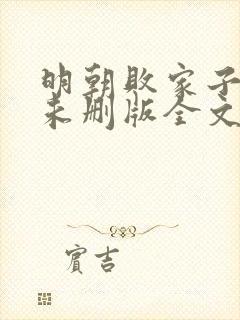 明朝败家子
未删版全文
宾吉